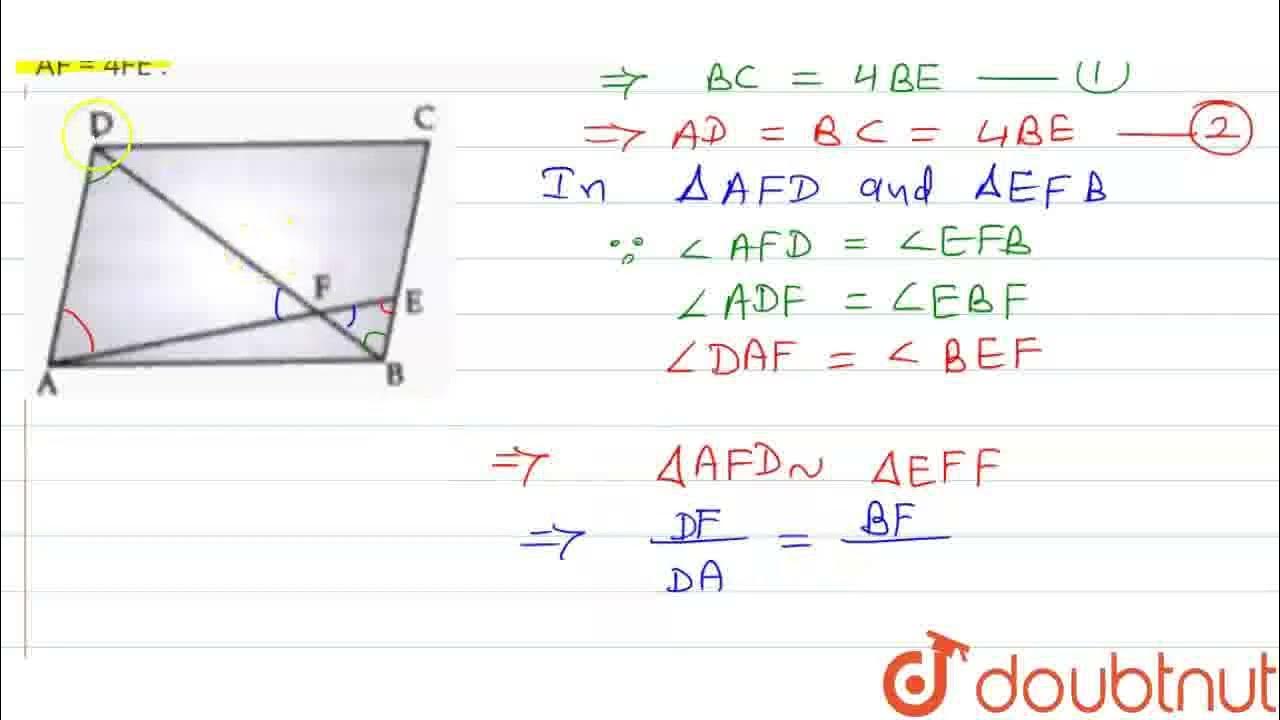 AF = 4FE .
⇒ BC = 4BE — ①
⇒ AD = BC = 4BE — ②
In ΔAFD and ΔEFB
∵ ∠AFD = ∠EFB
∠ADF = ∠EBF
∠DAF = ∠BEF
⇒ ΔAFD ~ ΔEFF
⇒ DF/DA = BF/
D
C
F
E
A
B
doubtnut